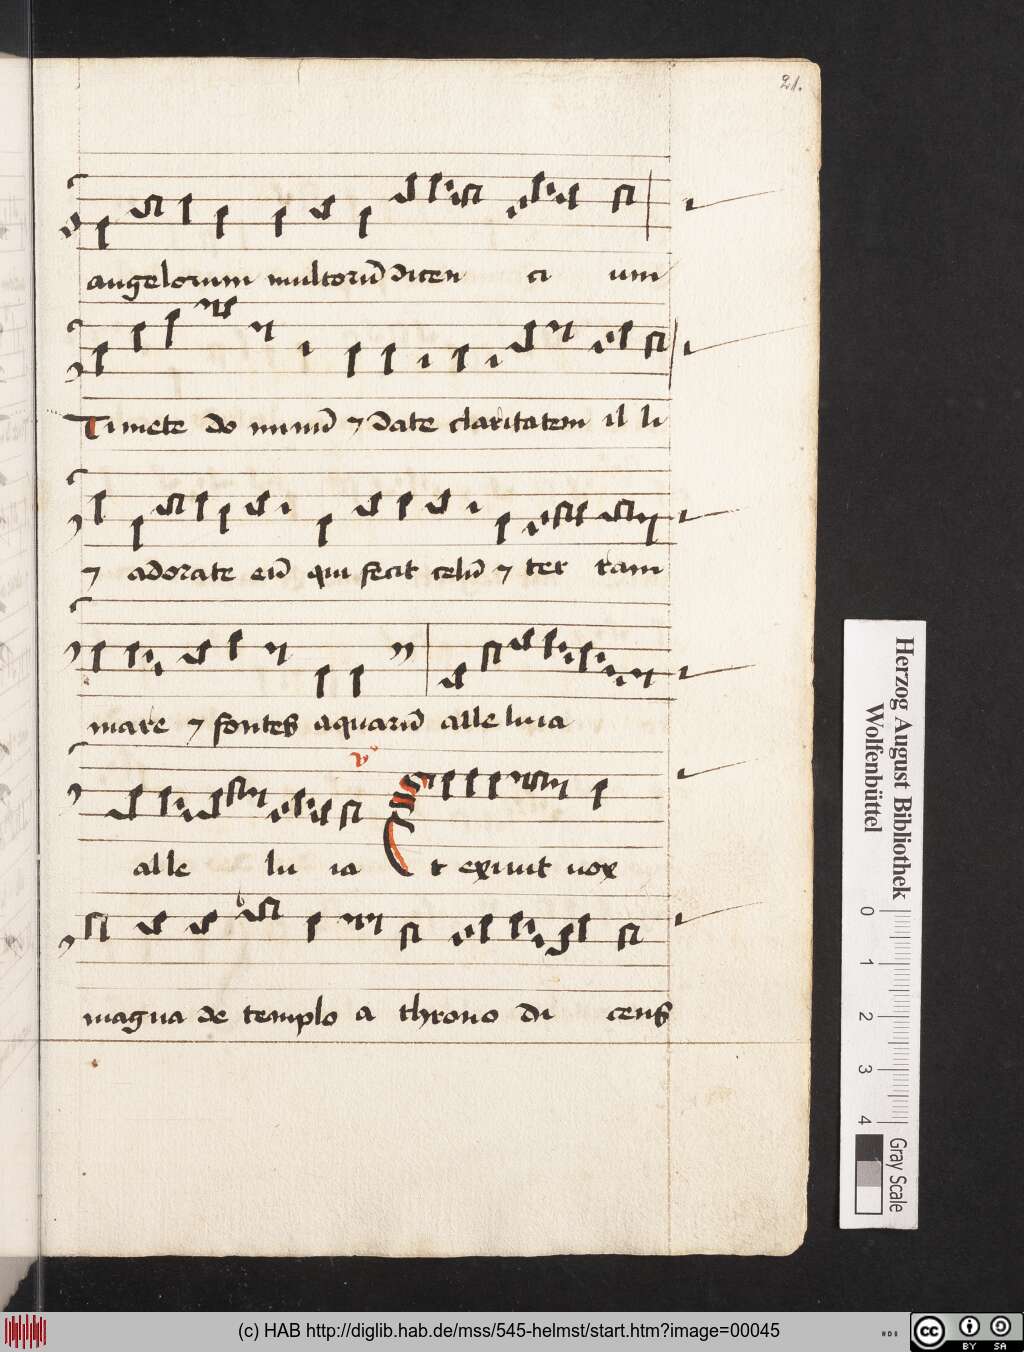 21.
angelorum multorū dicen ci um
Timete do minū ⁊ date claritatem il li
⁊ adorate eū qui fecit celū ⁊ ter ram
mare ⁊ fontes aquarū alle luia
v
alle lu ia Et exiuit uox
magna de templo a throno di cens
Herzog August Bibliothek
Wolfenbüttel
0 1 2 3 4
Gray Scale
(c) HAB http://diglib.hab.de/mss/545-helmst/start.htm?image=00045
cc BY SA